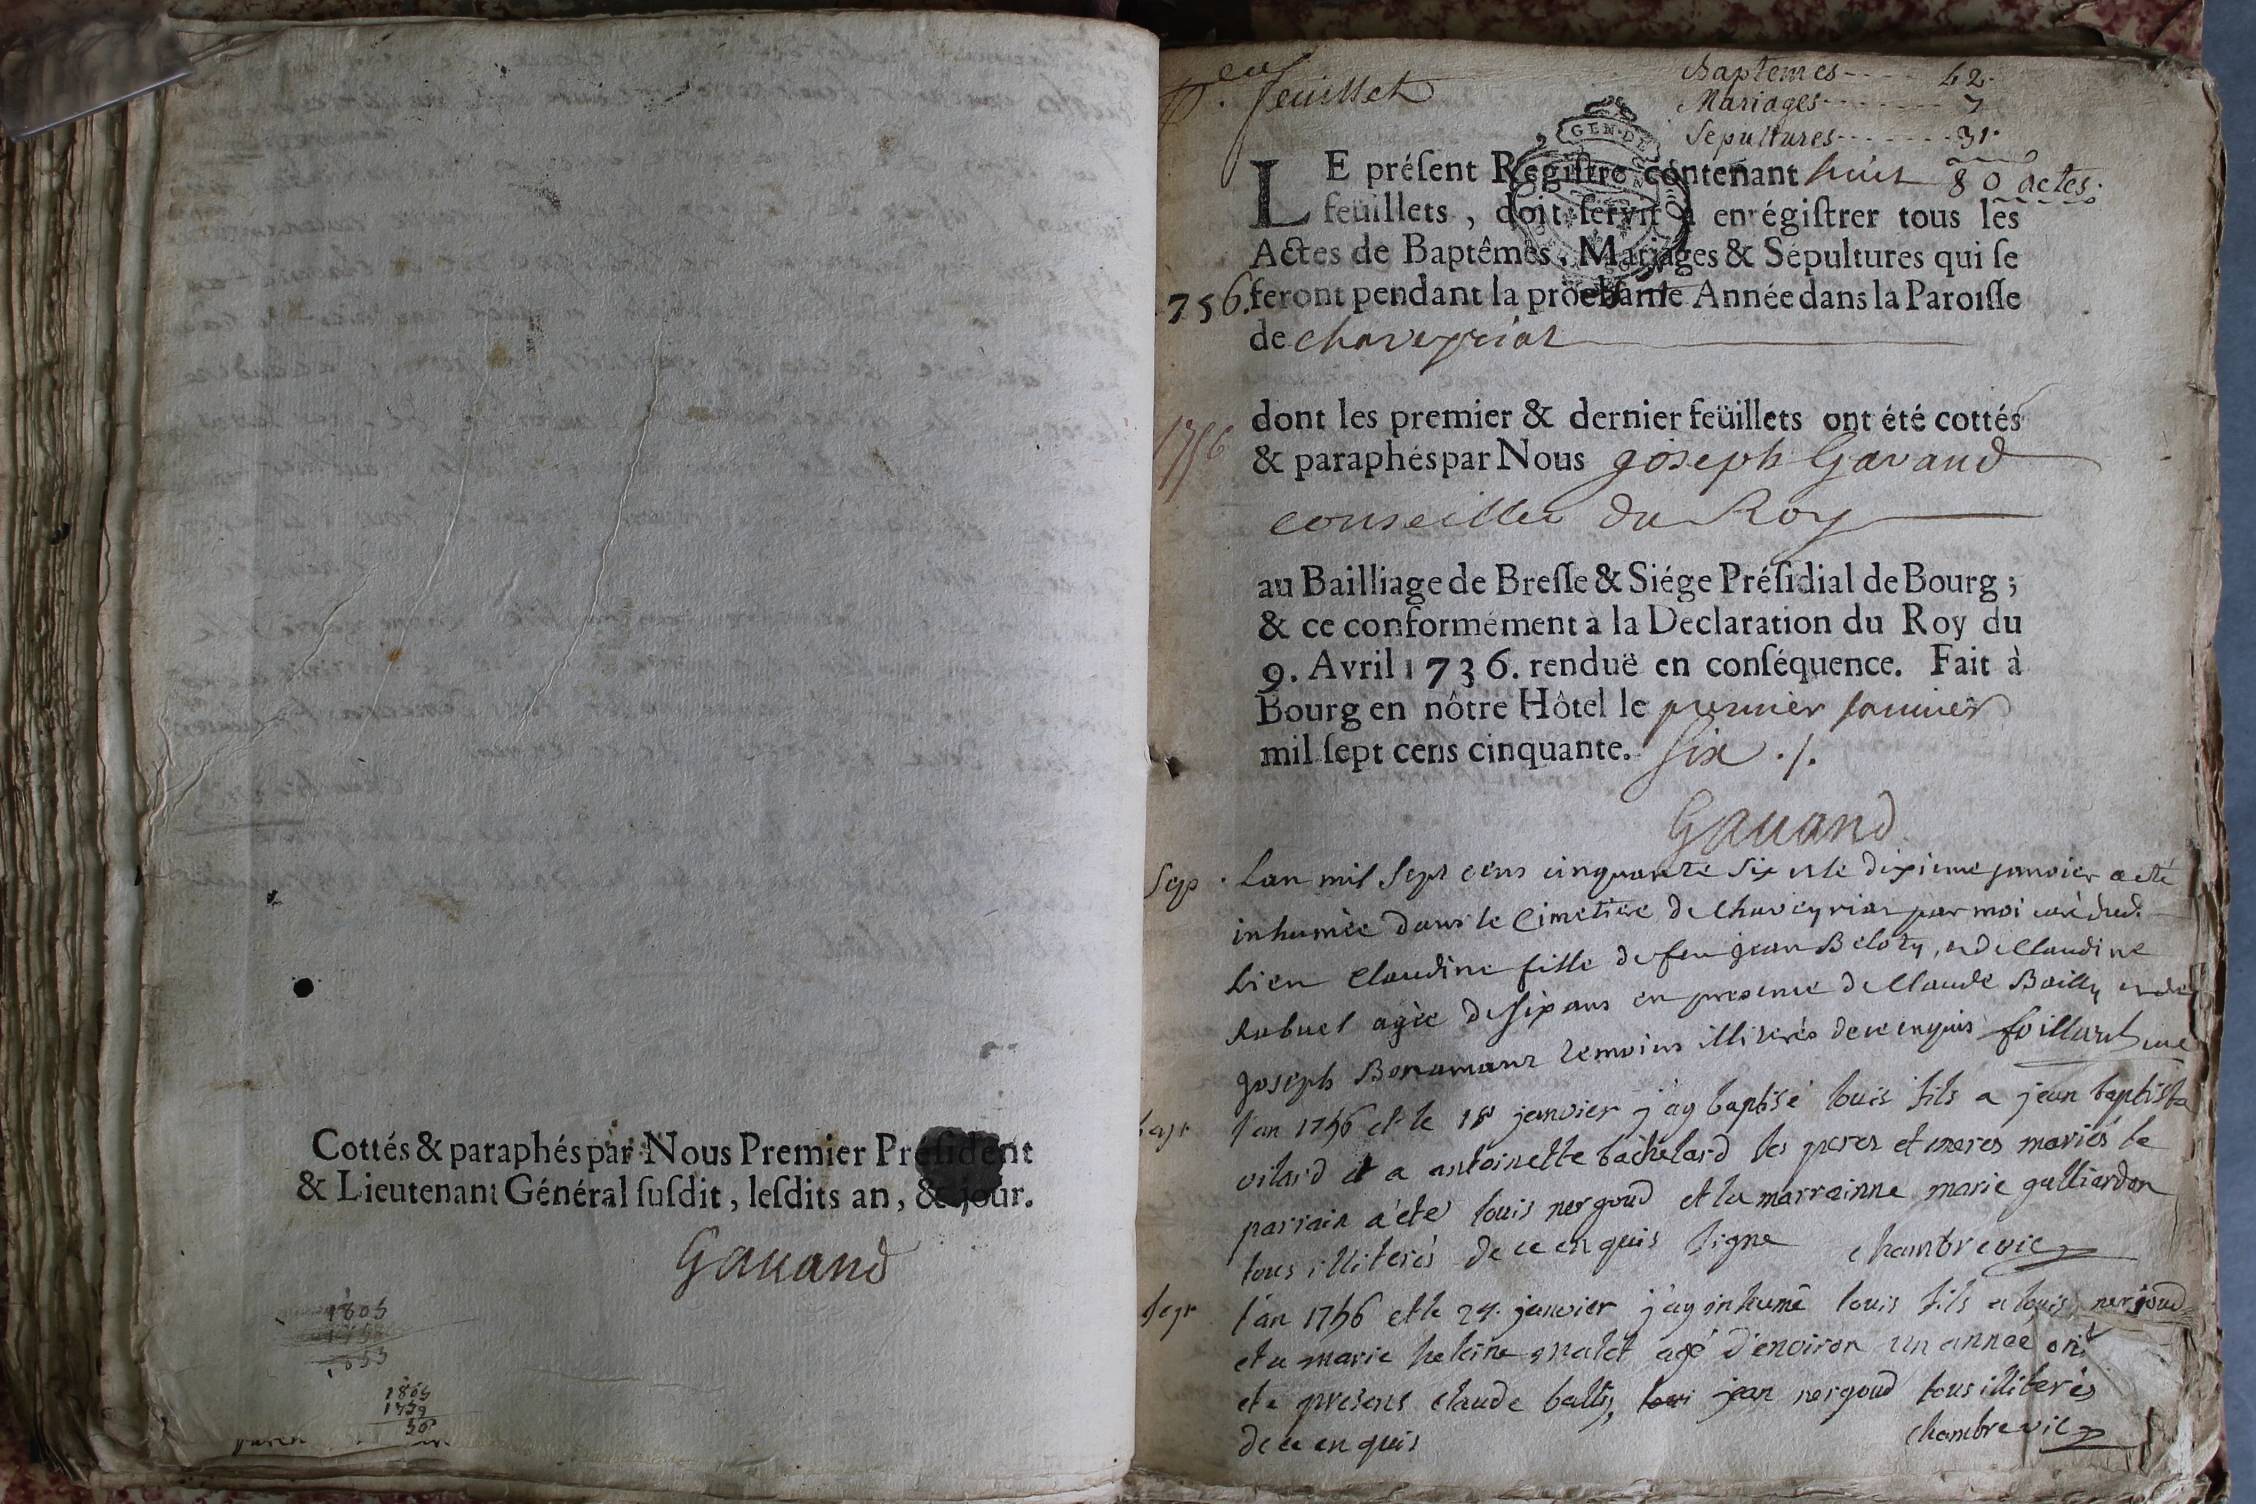 Cottés & paraphés par Nous Premier Préſident
& Lieutenant Général ſuſdit, leſdits an, & jour.
Gauand
1805
1805
1759
p.er feuillet
Baptemes---- 42.
Mariages------- 7
Sepultures------- 31.
80 actes.
GEN·DE
LE préſent Regiſtre contenant huit
feüillets, doit ſervir à enrégiſtrer tous les
Actes de Baptêmes, Mariages & Sépultures qui ſe
1756. feront pendant la prochaine Année dans la Paroiſſe
de chaveyriat
1756
dont les premier & dernier feüillets ont été cottés
& paraphés par Nous joseph Gavand
conseiller du Roy
au Bailliage de Breſſe & Siége Préſidial de Bourg ;
& ce conformément à la Declaration du Roy du
9. Avril 1736. renduë en conſéquence. Fait à
Bourg en nôtre Hôtel le premier januier
mil ſept cens cinquante. six ./.
Gauand
Sep. Lan mil Sept cens cinquante six et le dixieme janvier a eté
inhumée dans le Cimetiere de Chaveyriat par moi curé dud.
lieu Claudine fille de feu jean Beloty, et de Claudine
Rubuel agée de six ans en presence de Claude Bailly et de
joseph Bonamant temoins illiterés de ce enquis foillard curé
bapt l'an 1756 et le 18 janvier j'ay baptisé louis fils a jean baptista
vilard et a antoinette bachelard les peres et meres mariés le
parrain a été louis nergoud et la marrainne marie galliardon
tous illiterés de ce enquis signe chambre vic
sepr l'an 1756 et le 24. janvier j'ay inhumé louis fils a louis nergoud
et a marie heleine malet agé d'environ un annee ont
ete presens claude bally, jean nergoud tous illiterés
de ce enquis chambre vic